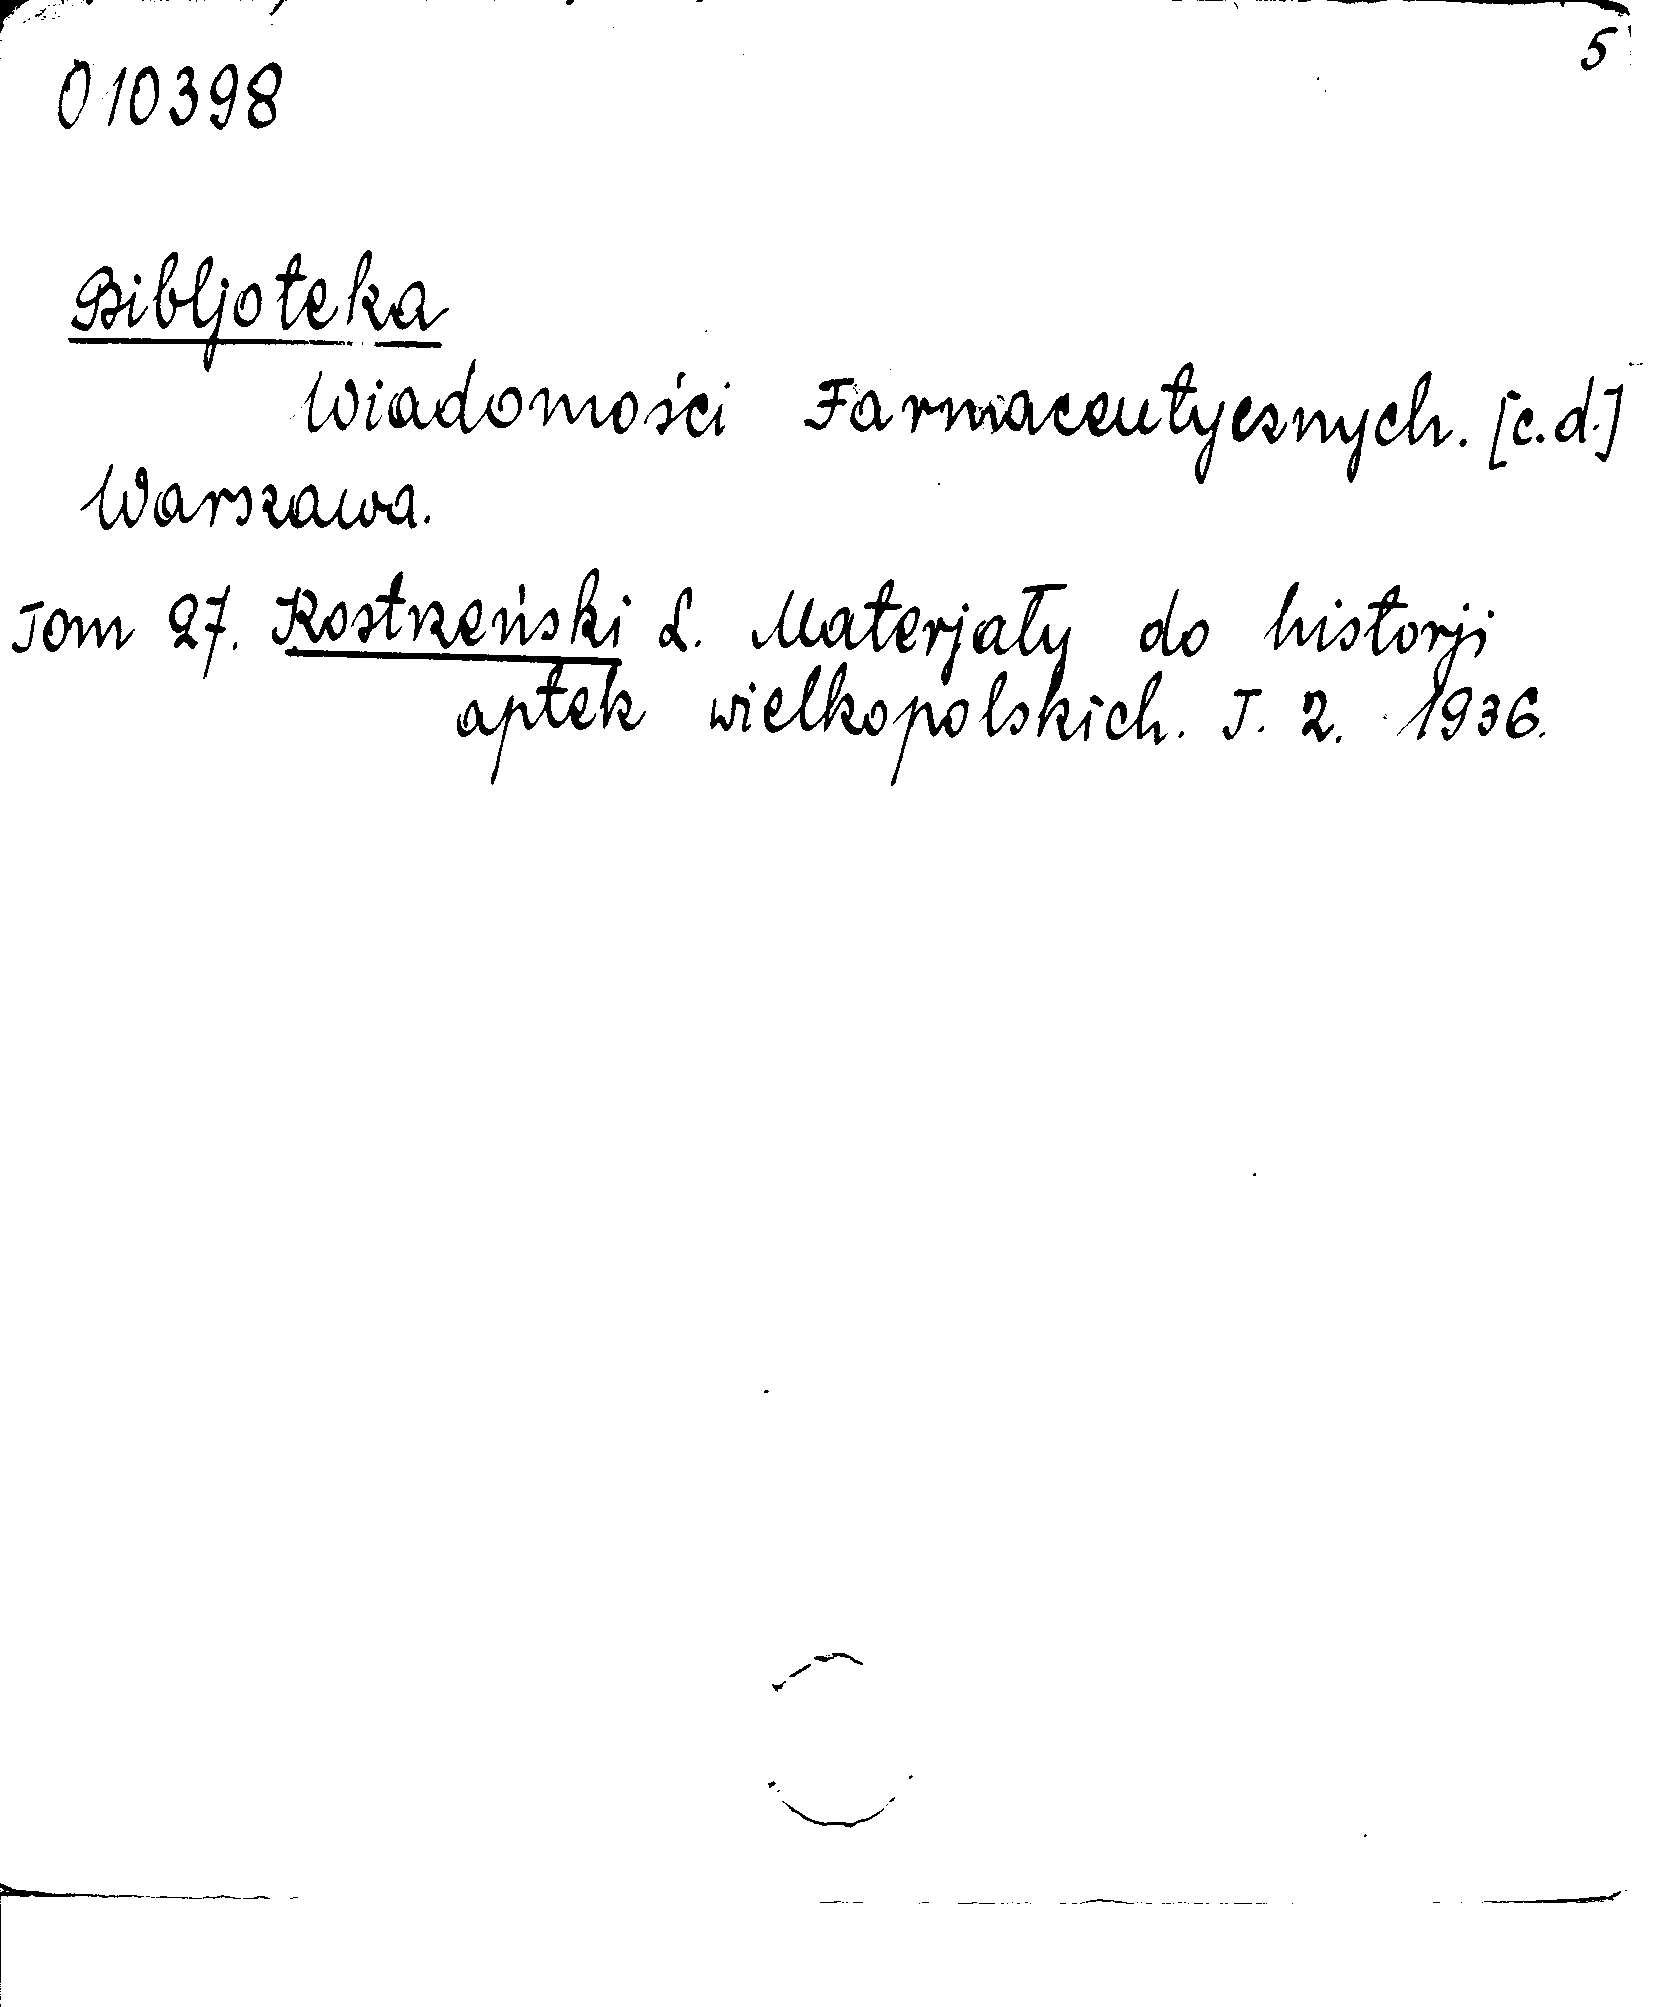 5
010398
Bibljoteka
Wiadomości Farmaceutycznych. [c.d.]
Warszawa.
Tom 27. Kostrzeński L. Materjały do historji
aptek wielkopolskich. T. 2. 1936.